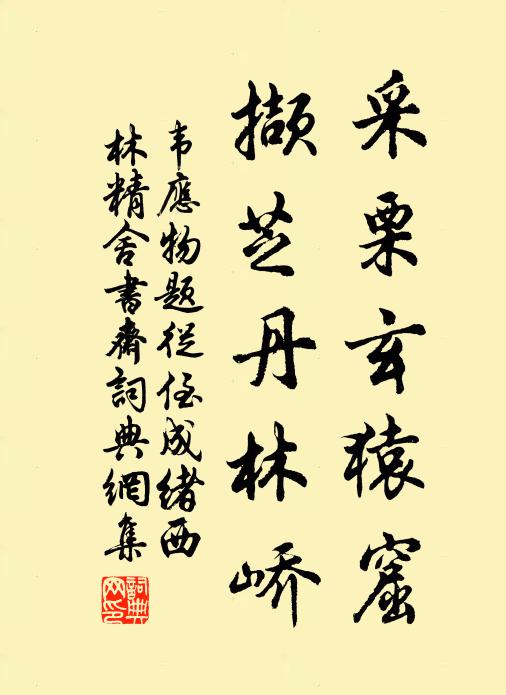 采栗玄猿窟
擷芝丹林峤
韦應物題從侄成緒西
林精舍書齋詞典網集
詞典
网印